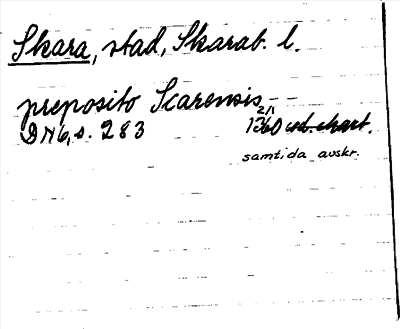 Skara, stad, Skarab. l.
preposito Scarensis, --
DN 6, s. 283 2/1 1360 cod. chart.
samtida avskr.